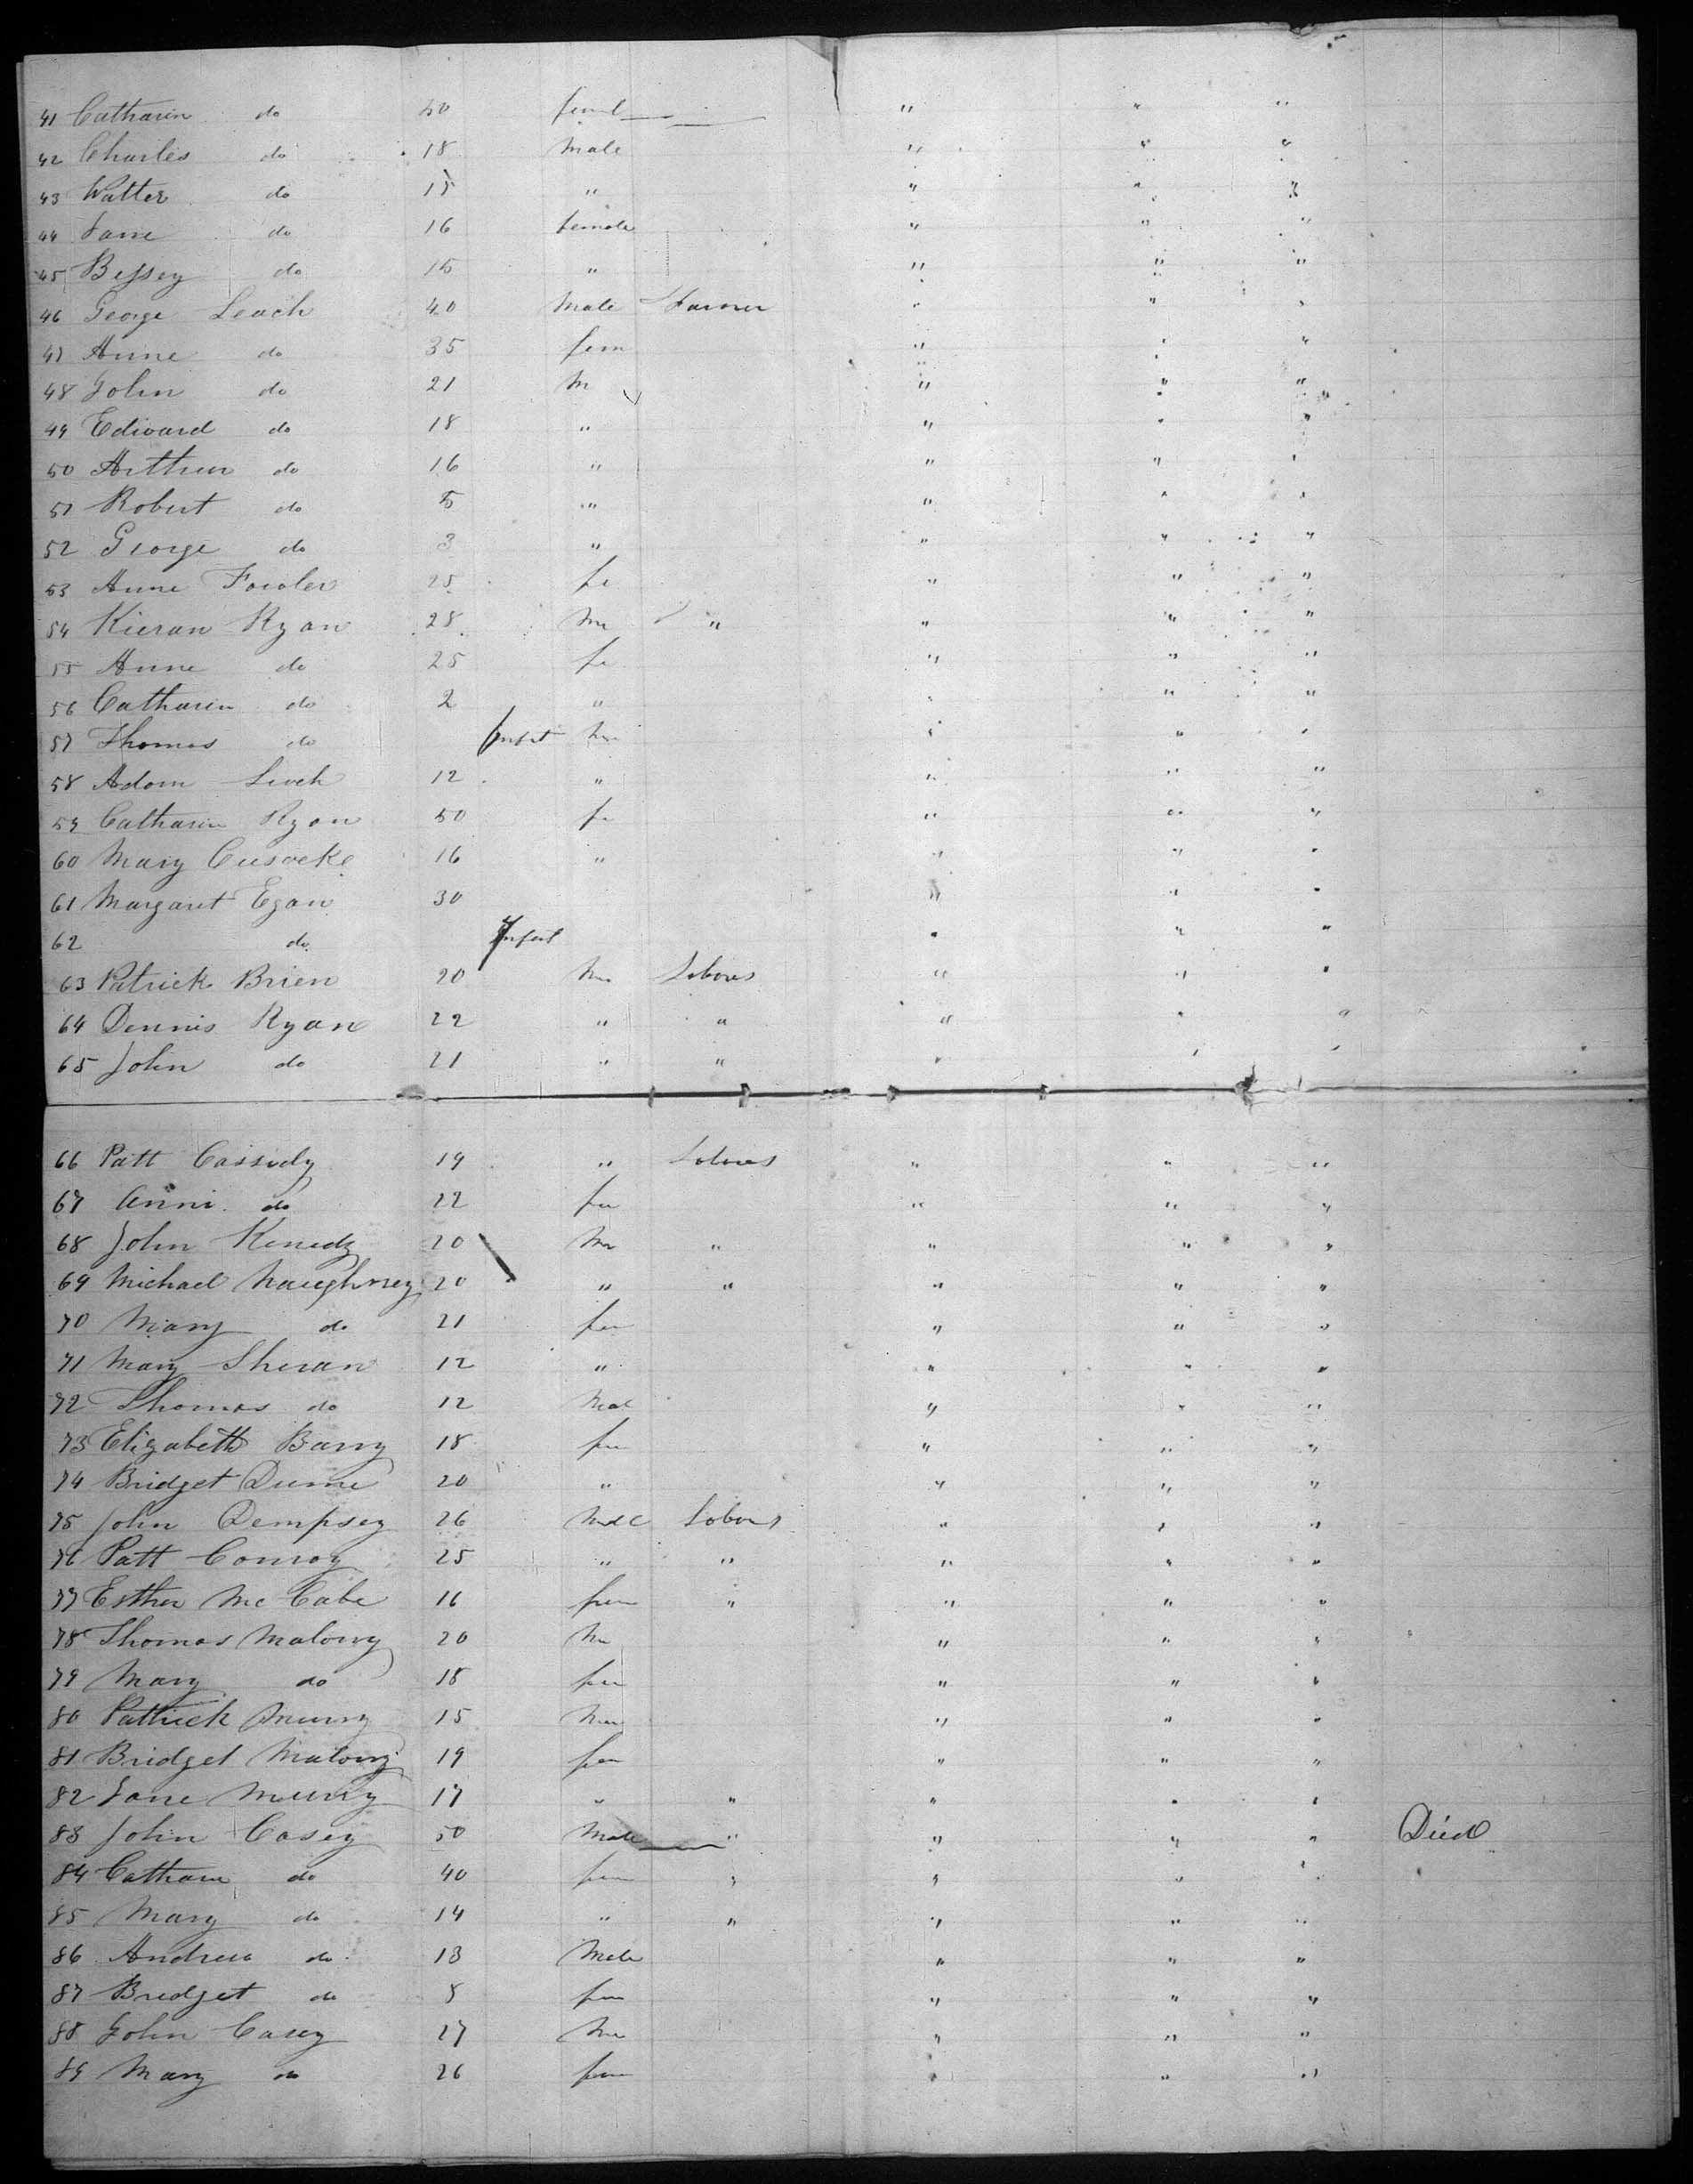 41 Catharin do 50 feml " " "
42 Charles do 18 Male " " "
43 Walter do 17 " " " "
44 Jane do 16 female " " "
45 Bessey do 15 " " " "
46 George Leach 40 Male Farmer " " "
47 Anne do 35 fem " " "
48 John do 21 M " " "
49 Edward do 18 " " " "
50 Arthur do 16 " " " "
51 Robert do 5 " " " "
52 George do 3 " " " "
53 Anne Fowler 25 fe " " "
54 Kieran Ryan 28 Ma " " " "
55 Anne do 25 fe " " "
56 Catharin do 2 " " " "
57 Thomas do Infat Ma " " "
58 Adam Leech 12 " " " "
59 Catharin Ryan 50 fe " " "
60 Mary Cusocke 16 " " " "
61 Margaret Egan 30 " " "
62 do Infat " " "
63 Patrick Brien 20 Ma Labour " " "
64 Dennis Ryan 22 " " " " "
65 John do 21 " " " " "
66 Patt Cassidy 19 " Labour " " "
67 Anni do 22 fem " " "
68 John Kenedy 20 Ma " " " "
69 Michael Naughney 20 " " " " "
70 Mary do 21 fem " " "
71 Mary Sheran 12 " " " "
72 Thomas do 12 Mal " " "
73 Elizabeth Barry 18 fem " " "
74 Bridget Dunne 20 " " " "
75 John Dempsey 26 Male Labour " " "
76 Patt Conroy 25 " " " " "
77 Esther Mc Cabe 16 fem " " " "
78 Thomas Malowy 20 Ma " " "
79 Mary do 18 fem " " "
80 Pattrick Murry 15 Ma " " "
81 Bridget Malowy 19 fem " " "
82 Jane Murry 17 " " " " "
83 John Casey 50 Male " " " " Died
84 Catharin do 40 fem " " " "
85 Mary do 14 " " " " "
86 Andrew do 13 Male " " "
87 Bredget do 8 fem " " "
88 John Casey 27 Ma " " "
89 Mary do 26 fem " " "